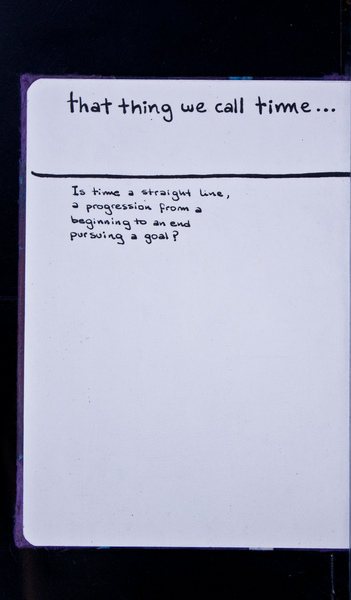 that thing we call time...
Is time a straight line,
a progression from a
beginning to an end
pursuing a goal?